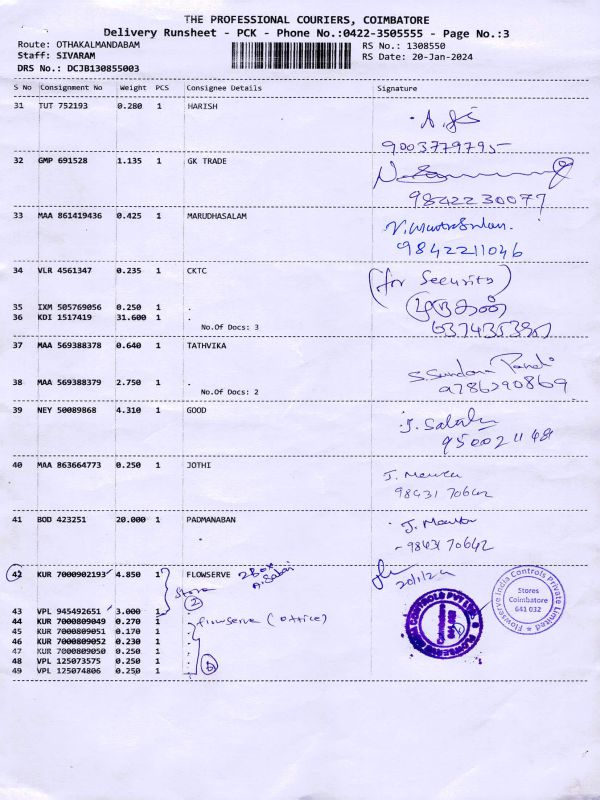 THE PROFESSIONAL COURIERS, COIMBATORE
Delivery Runsheet - PCK - Phone No.:0422-3505555 - Page No.:3
Route: OTHAKALMANDABAM RS No.: 1308550
Staff: SIVARAM RS Date: 20-Jan-2024
DRS No.: DCJB130855003
S No Consignment No Weight PCS Consignee Details Signature
31 TUT 752193 0.280 1 HARISH
9003779795
32 GMP 691528 1.135 1 GK TRADE
9842230077
33 MAA 861419436 0.425 1 MARUDHASALAM
9842211046
34 VLR 4561347 0.235 1 CKTC
(for Security)
35 IXM 505769056 0.250 1 .
36 KDI 1517419 31.600 1 .
No.Of Docs: 3
37 MAA 569388378 0.640 1 TATHVIKA
S. Sundara Pandi
9786290869
38 MAA 569388379 2.750 1 .
No.Of Docs: 2
39 NEY 50089868 4.310 1 GOOD
40 MAA 863664773 0.250 1 JOTHI
98431 70642
41 BOD 423251 20.000 1 PADMANABAN
98431 70642
42 KUR 7000902193 4.850 1 FLOWSERVE 2 Box
20/1/24
Store
2
43 VPL 945492651 3.000 1 .
44 KUR 7000809049 0.270 1 . flowserve (office)
45 KUR 7000809051 0.170 1 .
46 KUR 7000809052 0.230 1 .
47 KUR 7000809050 0.250 1 .
48 VPL 125073575 0.250 1 .
49 VPL 125074806 0.250 1 .
Flowserve India Controls Private Limited
Stores
Coimbatore
641 032